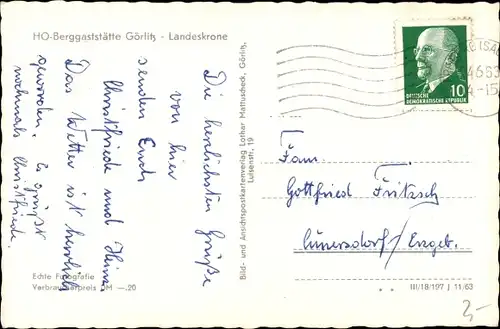 HO-Berggaststätte Görlitz - Landeskrone
Die herzlichsten Grüße
von hier
senden Euch
Christfriede und Heinz
Das Wetter ist herrlich
geworden. Es grüßt
nochmals Christfriede.
Echte Fotografie
Verbraucherpreis DM —.20
Bild- und Ansichtspostkartenverlag Lothar Mattuscheck, Görlitz,
Luisenstr. 19
10
DEUTSCHE
DEMOKRATISCHE REPUBLIK
Fam.
Gottfried Fritzsch
Cunersdorf/Erzgeb.
III/18/197 J 11/63
2,-